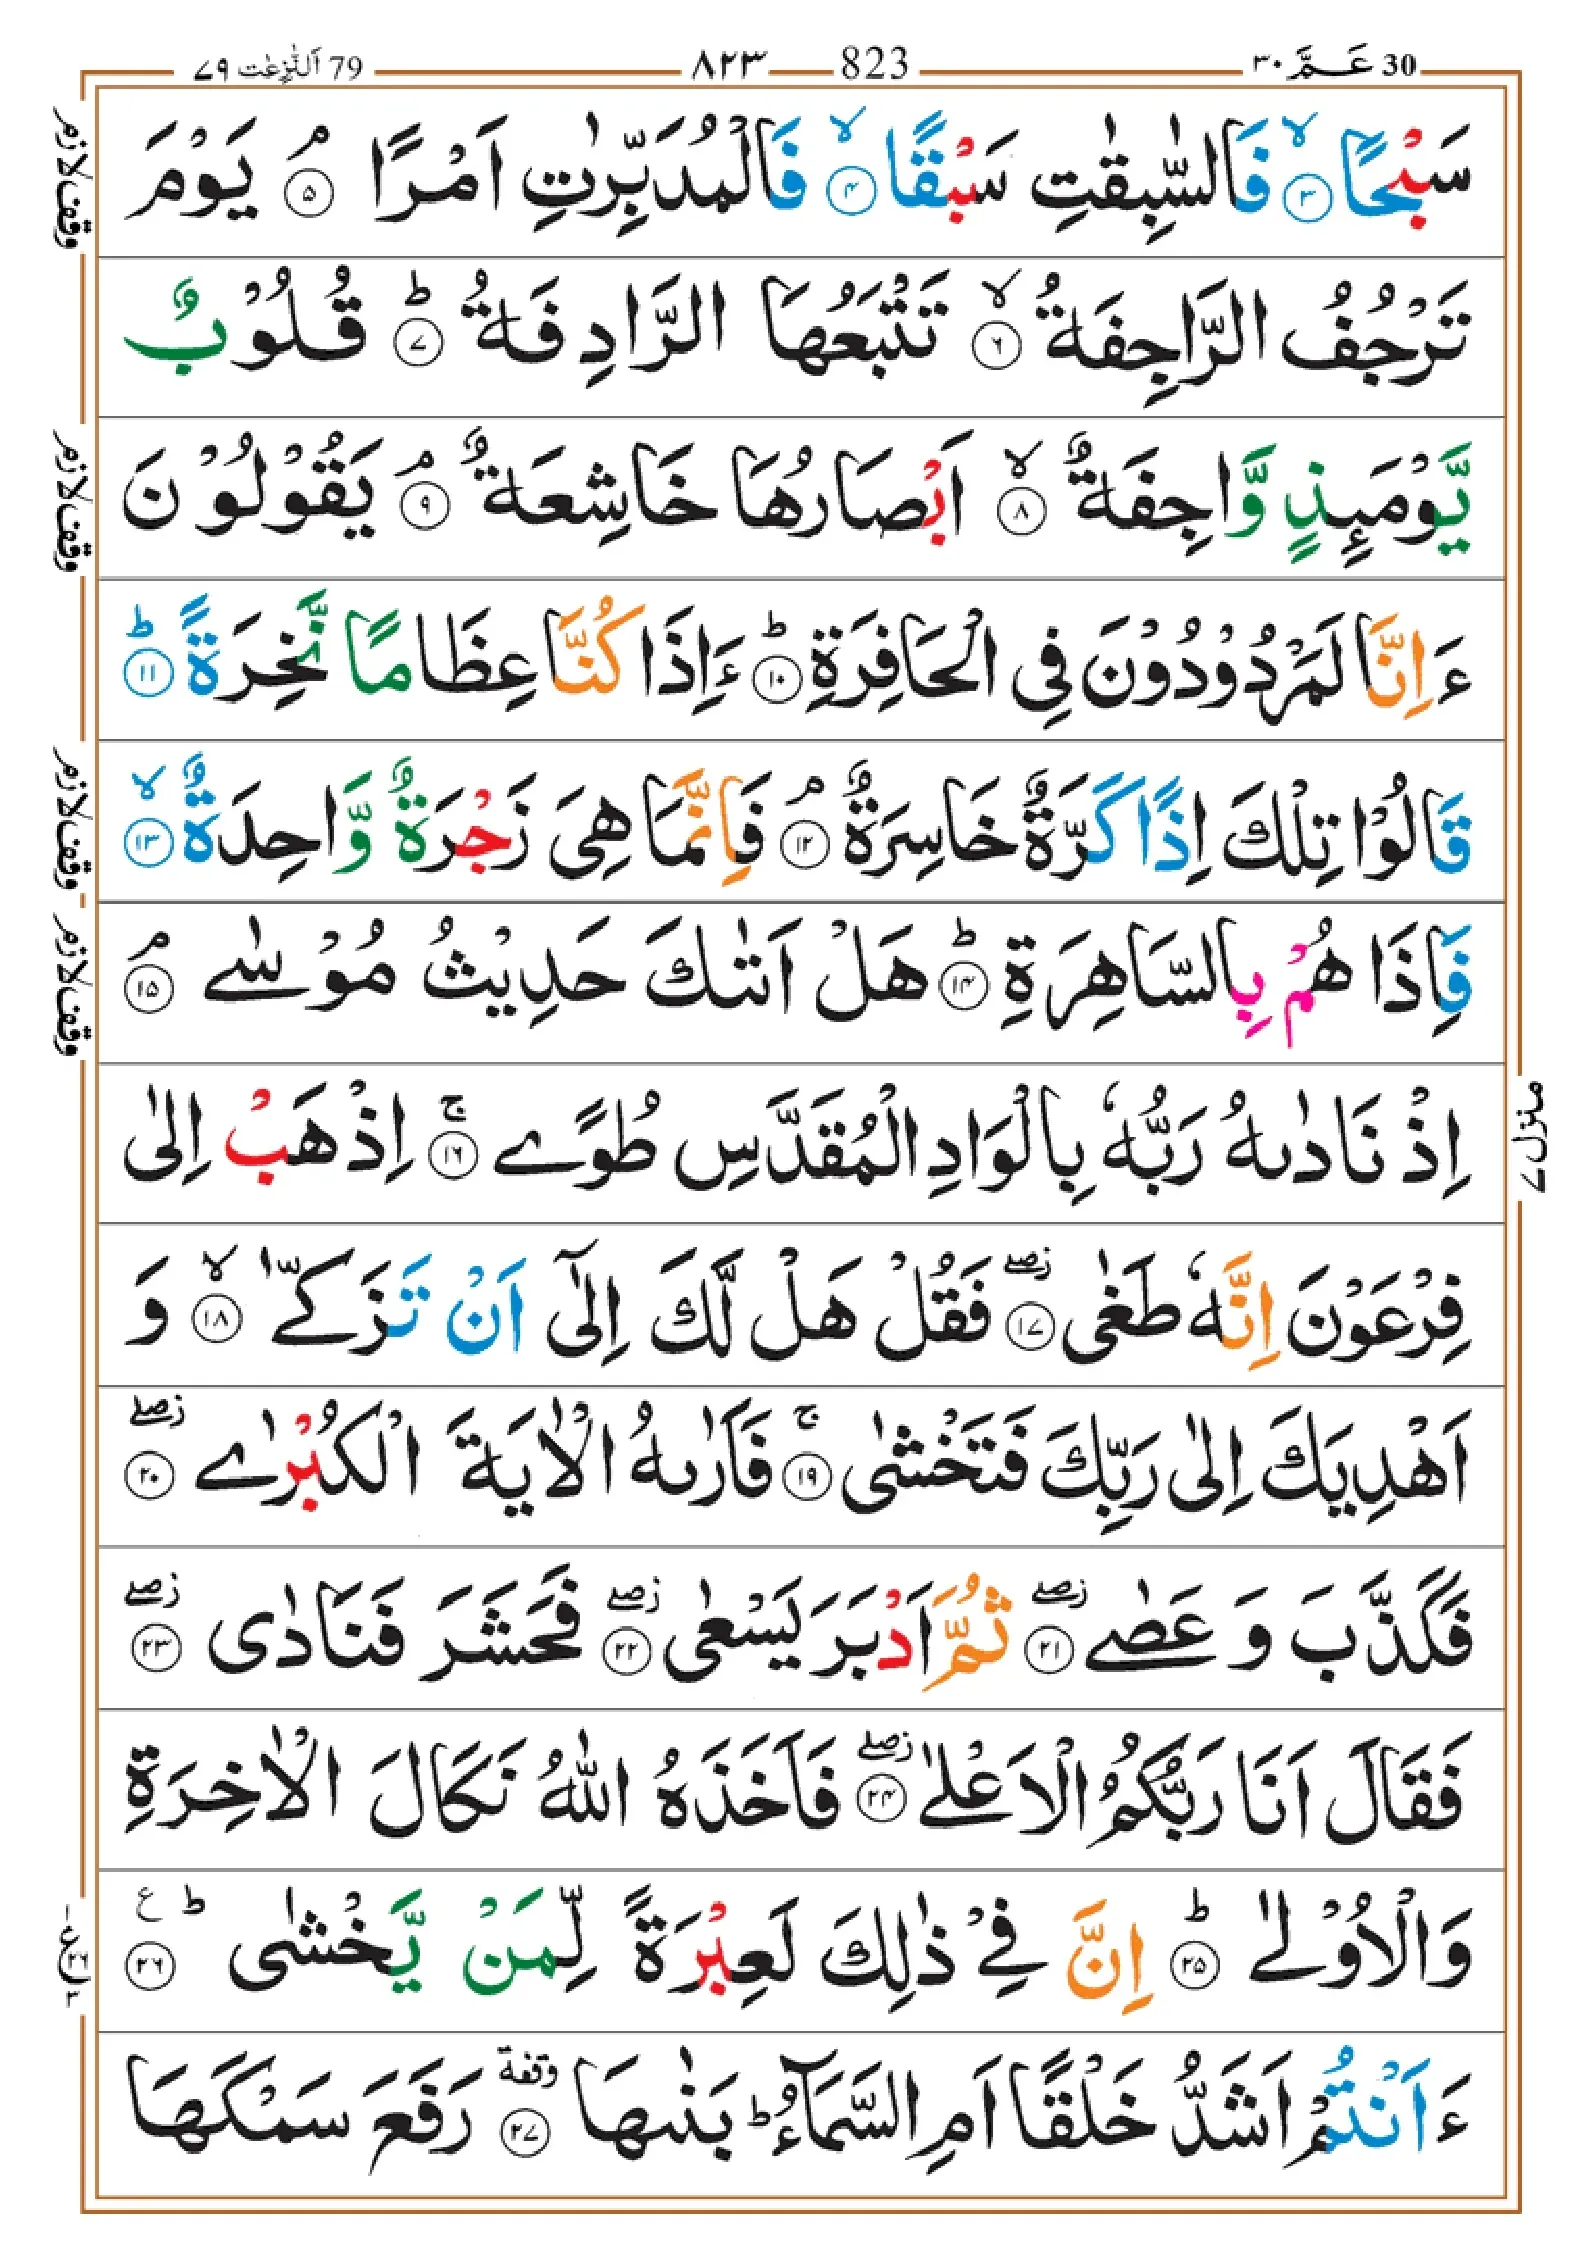 30 عَــمَّ ٣٠ 823 ٨٢٣ 79 اَلنّٰزِعٰت ٧٩
سَبْحًا ۙ﴿٣﴾ فَالسّٰبِقٰتِ سَبْقًا ۙ﴿٤﴾ فَالْمُدَبِّرٰتِ اَمْرًا ۘ﴿٥﴾ يَوْمَ
وقف لازم
تَرْجُفُ الرَّاجِفَةُ ۙ﴿٦﴾ تَتْبَعُهَا الرَّادِفَةُ ؕ﴿٧﴾ قُلُوْبٌ
يَّوْمَىِٕذٍ وَّاجِفَةٌ ۙ﴿٨﴾ اَبْصَارُهَا خَاشِعَةٌ ۘ﴿٩﴾ يَقُوْلُوْنَ
وقف لازم
ءَاِنَّا لَمَرْدُوْدُوْنَ فِى الْحَافِرَةِ ؕ﴿١٠﴾ ءَاِذَا كُنَّا عِظَامًا نَّخِرَةً ؕ﴿١١﴾
قَالُوْا تِلْكَ اِذًا كَرَّةٌ خَاسِرَةٌ ۘ﴿١٢﴾ فَاِنَّمَا هِىَ زَجْرَةٌ وَّاحِدَةٌ ۙ﴿١٣﴾
وقف لازم
فَاِذَا هُمْ بِالسَّاهِرَةِ ؕ﴿١٤﴾ هَلْ اَتٰىكَ حَدِيْثُ مُوْسٰے ۘ﴿١٥﴾
وقف لازم
اِذْ نَادٰىهُ رَبُّهٗ بِالْوَادِ الْمُقَدَّسِ طُوًے ۚ﴿١٦﴾ اِذْهَبْ اِلٰى
منزل ٧
فِرْعَوْنَ اِنَّهٗ طَغٰى ۖز﴿١٧﴾ فَقُلْ هَلْ لَّكَ اِلٰٓى اَنْ تَزَكّٰے ۙ﴿١٨﴾ وَ
اَهْدِيَكَ اِلٰى رَبِّكَ فَتَخْشٰى ۚ﴿١٩﴾ فَاَرٰىهُ الْاٰيَةَ الْكُبْرٰے ۖز﴿٢٠﴾
فَكَذَّبَ وَ عَصٰے ۖز﴿٢١﴾ ثُمَّ اَدْبَرَ يَسْعٰى ۖز﴿٢٢﴾ فَحَشَرَ فَنَادٰى ۖز﴿٢٣﴾
فَقَالَ اَنَا رَبُّكُمُ الْاَعْلٰے ۖز﴿٢٤﴾ فَاَخَذَهُ اللّٰهُ نَكَالَ الْاٰخِرَةِ
وَالْاُوْلٰے ؕ﴿٢٥﴾ اِنَّ فِىْ ذٰلِكَ لَعِبْرَةً لِّمَنْ يَّخْشٰى ؕ ع ﴿٢٦﴾
ءَاَنْتُمْ اَشَدُّ خَلْقًا اَمِ السَّمَآءُ ؕ بَنٰىهَا وقفة ﴿٢٧﴾ رَفَعَ سَمْكَهَا